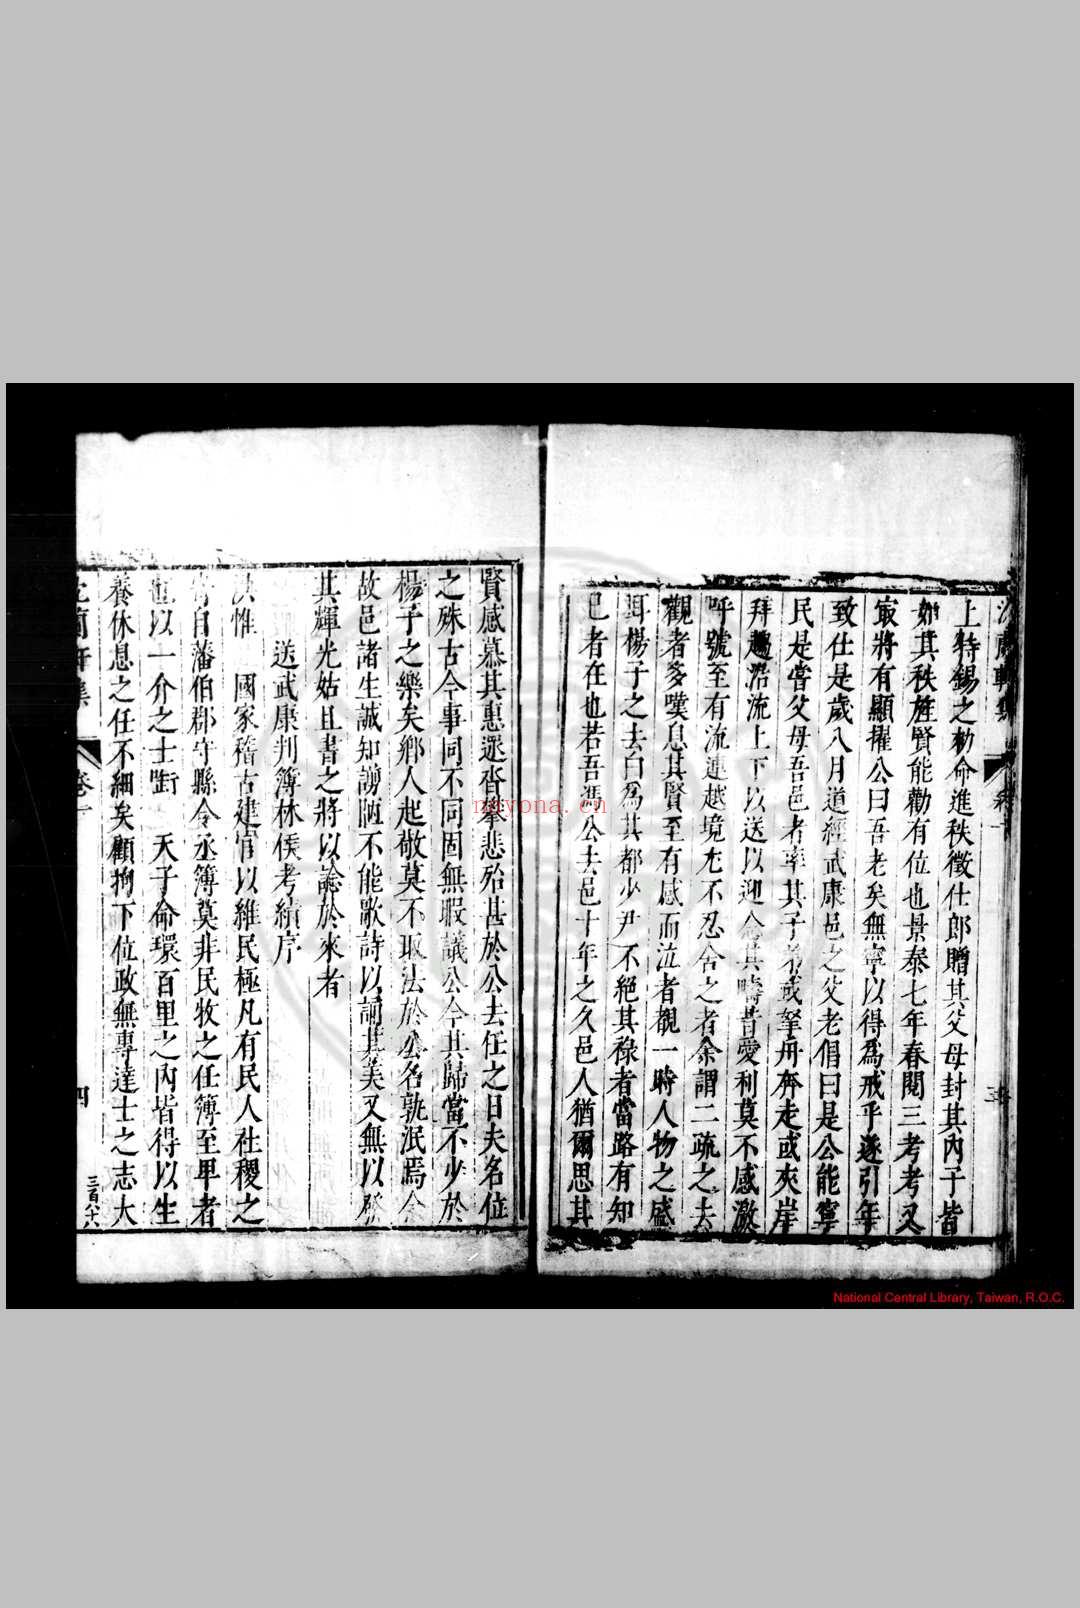 上特錫之勑命進秩徵仕郎贈其父母封其內子皆
如其秩旌賢能勸有位也景泰七年春閱三考考又
㝡將有顯擢公曰吾老矣無寧以得為戒乎遂引年
致仕是歲八月道經武康邑之父老倡曰是公能寧
民是嘗父母吾邑者率其子弟或拏舟奔走或夾岸
拜趨沿流上下以送以迎念其疇昔愛利莫不感激
呼號至有流連越境尤不忍舍之者余謂二疏之去
觀者多嘆息其賢至有感而泣者觀一時人物之盛
耳楊子之去白為其都少尹不絕其祿者當路有知
己者在也若吾馮公去邑十年之久邑人猶爾思其
賢感慕其惠遝沓攀悲殆甚於公去任之日夫名位
之殊古今事同不同固無暇議公今其歸當不少於
楊子之樂矣鄉人起敬莫不取法於公名孰泯焉今
故邑諸生誠知謭陋不能歌詩以誦其美又無以發
其輝光姑且書之將以諗於來者
送武康判簿林侯考績序
洪惟 國家稽古建官以維民極凡有民人社稷之
寄自藩伯郡守縣令丞簿莫非民牧之任簿至卑者
也以一介之士啣 天子命環百里之內皆得以生
養休息之任不細矣顧拘下位政無專達士之志大
卷一
四
三百八六
nnyona.cn
National Central Library, Taiwan, R.O.C.